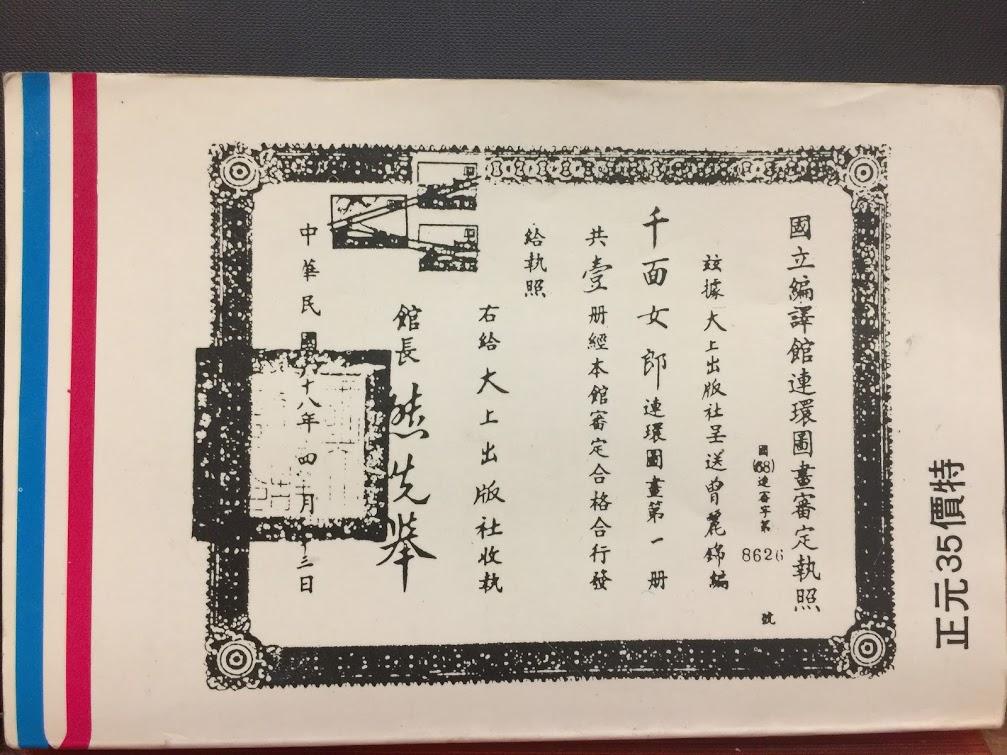 國立編譯館連環圖畫審定執照
國(68)連審字第8626號
茲據大上出版社呈送曾麗錦編
千面女郎連環圖畫第一册
共壹册經本館審定合格合行發
給執照
右給大上出版社收執
館長熊先舉
中華民國六十八年四月十三日
特價35元正